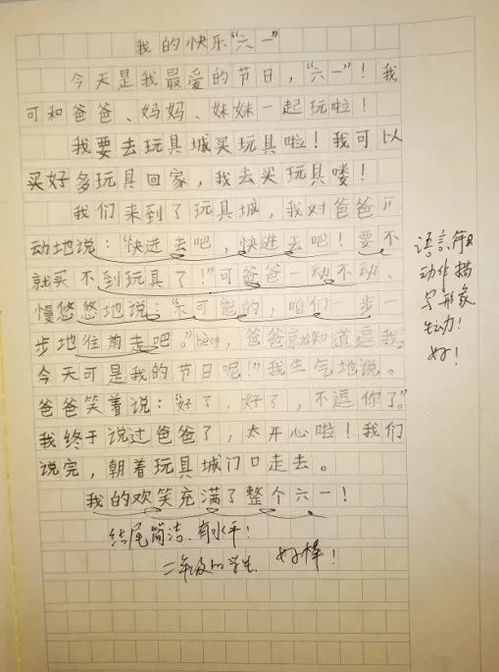 我的快乐“六一”
今天是我最爱的节日，“六一”！我
可和爸爸、妈妈、妹妹一起玩啦！
我要去玩具城买玩具啦！我可以
买好多玩具回家，我去买玩具喽！
我们来到了玩具城，我对爸爸
动地说：“快进去吧，快进去吧！要不
就买不到玩具了！”可爸爸一动不动、
慢悠悠地说：“不可能的，咱们一步一
步地往前走吧。”hēng，爸爸就知道逗我，
今天可是我的节日呢！”我生气地说。
爸爸笑着说：“好了，好了，不逗你了。”
我终于说过爸爸了，太开心啦！我们
说完，朝着玩具城门口走去。
我的欢笑充满了整个六一！
语言和
动作描
写形象
生动！
好！
结尾简洁、有水平！
二年级的学生 好棒！